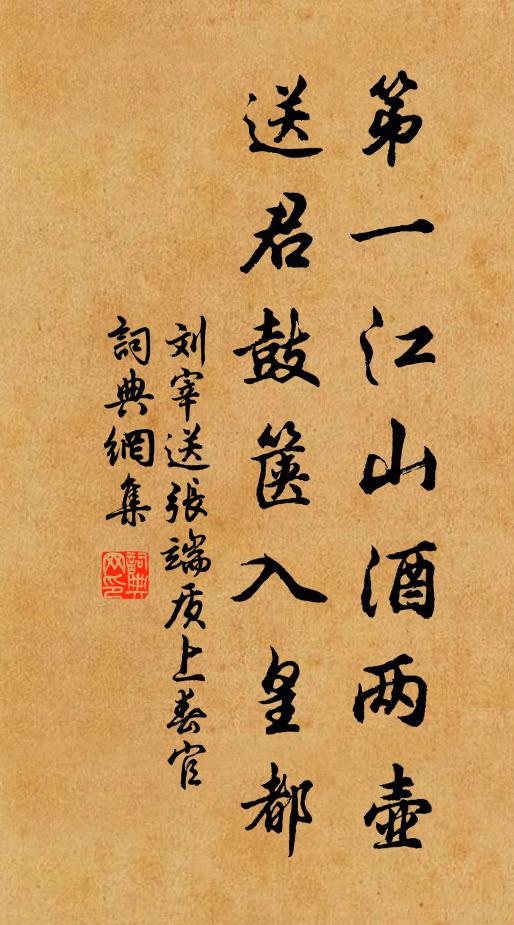 第一江山酒两壶
送君鼓箧入皇都
刘宰送張端质上春官
詞典網集
詞典网印